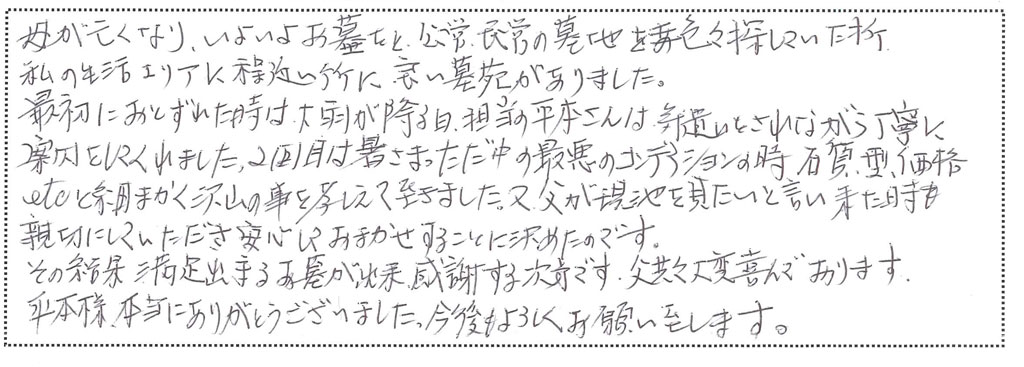 母が亡くなり、いよいよお墓をと、公営、民営の墓地を色々探していた折、
私の生活エリアに程近い所に良い墓苑がありました。
最初におとずれた時は大雨が降る日、担当の平本さんは気遣いをされながら丁寧に
案内をしてくれました。2回目は暑さまっただ中の最悪のコンデションの時、石質、型、価格
etcと細まかく沢山の事を教しえて頂きました。又、父が現地を見たいと言い来た時も
親切にしていただき安心しておまかせすることに決めたのです。
その結果満足出来るお墓が出来、感謝する次第です。父共々大変喜んでおります。
平本様、本当にありがとうございました。今後もよろしくお願い致します。